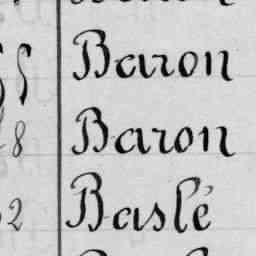 Baron
8 Baron
2 Baslé